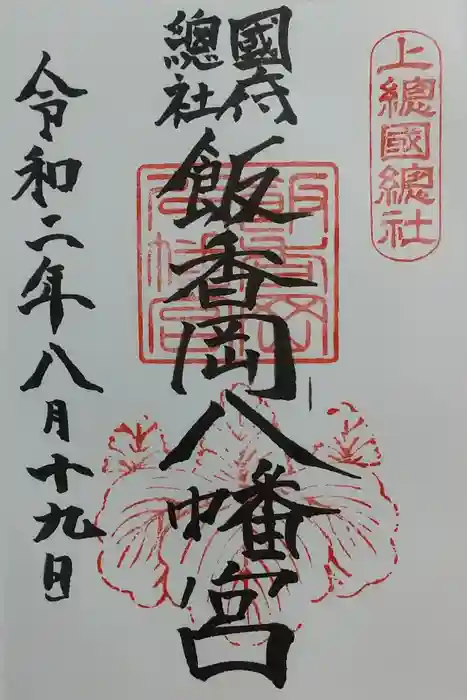 上總國總社
國府
總社
飯香岡八幡宮
令和二年八月十九日